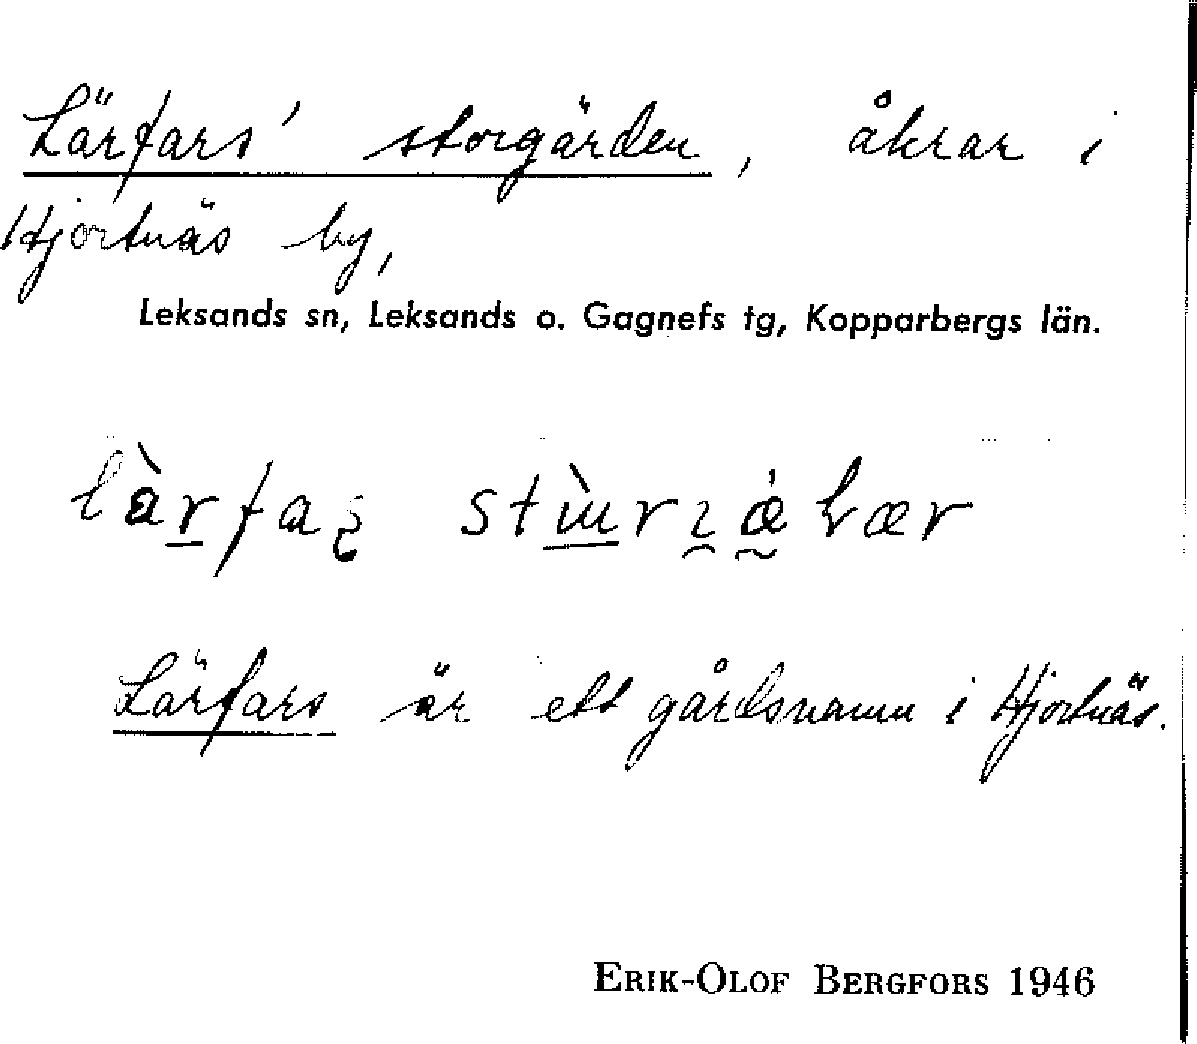 Lärfars' storgärden, åkrar i
Hjortnäs by,
Leksands sn, Leksands o. Gagnefs tg, Kopparbergs län.
Lärfars är ett gårdsnamn i Hjortnäs.
ERIK-OLOF BERGFORS 1946